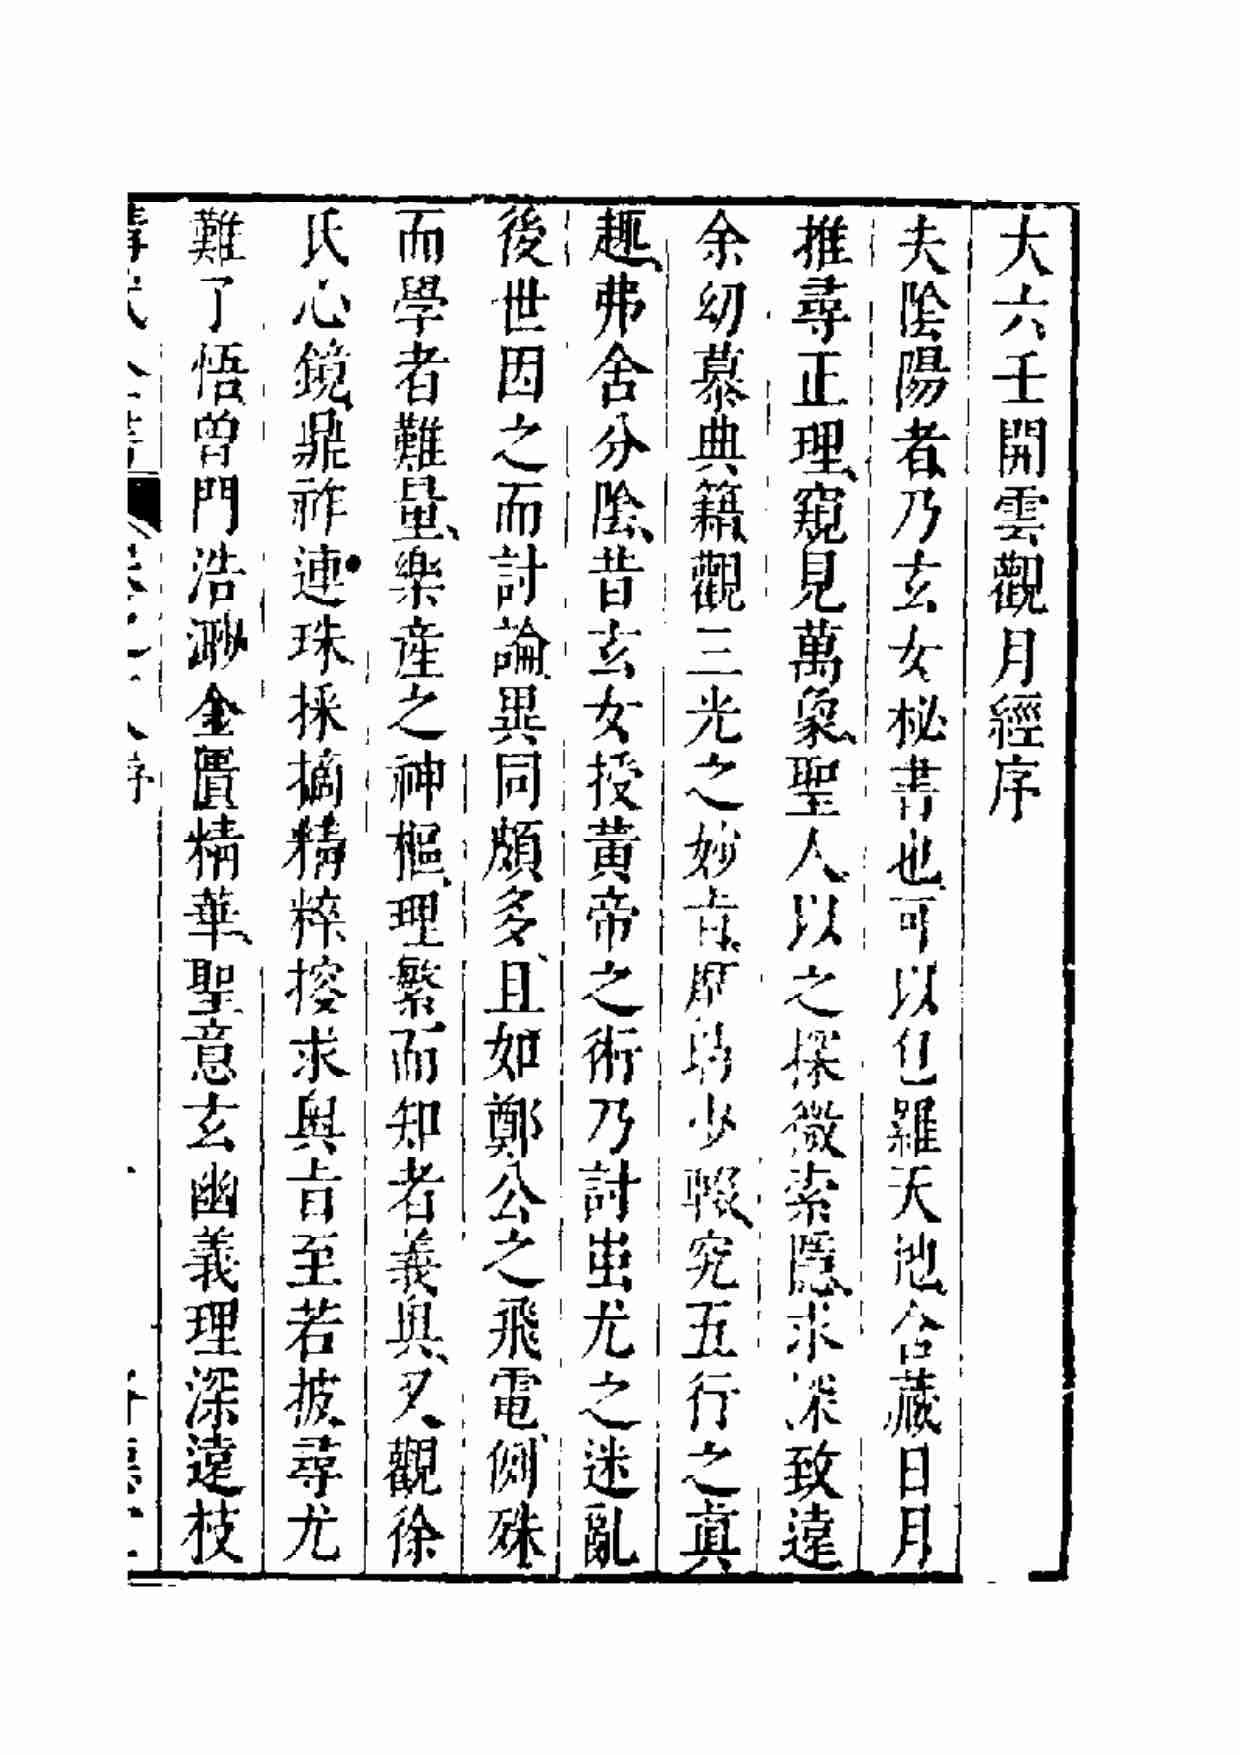 大六壬開雲觀月經序
夫陰陽者乃玄女秘書也可以包羅天地含藏日月
推尋正理窺見萬象聖人以之探微索隱求深致遠
余幼慕典籍觀三光之妙旨歷少輟究五行之眞
趣弗舍分陰昔玄女授黃帝之術乃討蚩尤之迷亂
後世因之而討論異同頗多且如鄭公之飛電側殊
而學者難量樂産之神樞理繁而知者義奧又觀徐
氏心鏡鼎祚連珠採摘精粹搜求奧旨至若披尋尤
難了悟曾門浩渺金匱精華聖意玄幽義理深遠枝